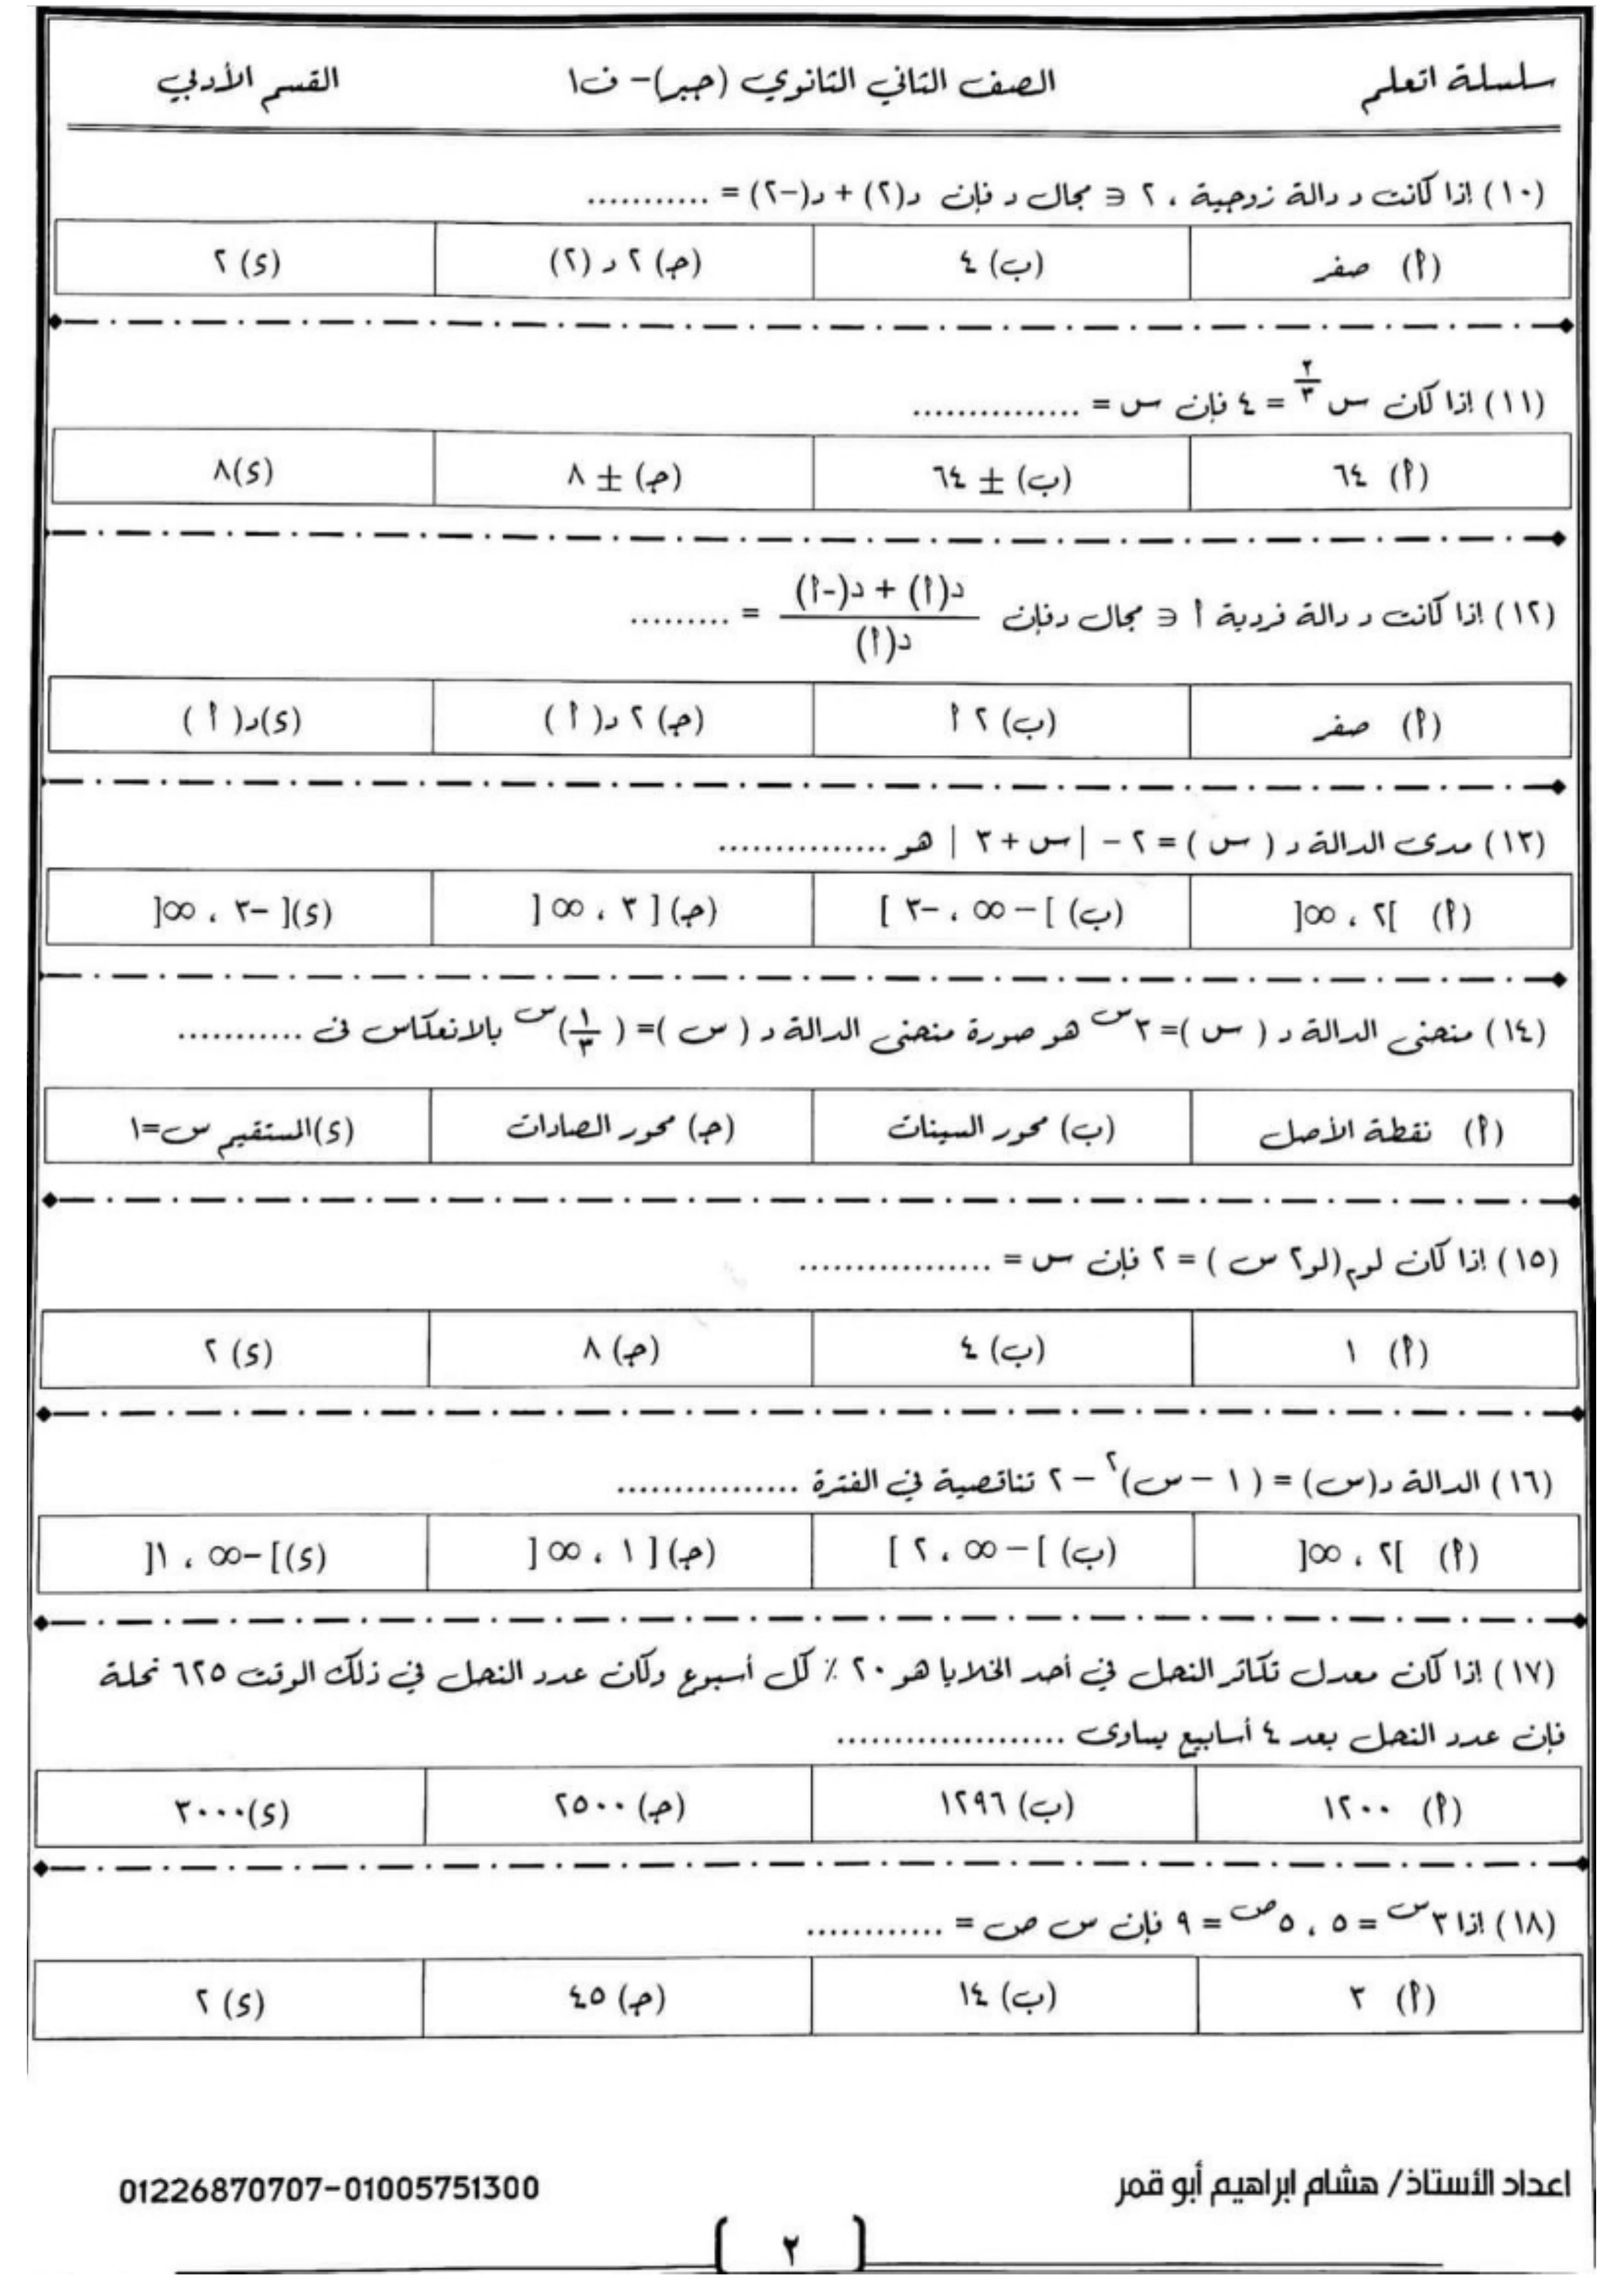 سلسلة اتعلم الصف الثاني الثانوي (جبر) – ف١ القسم الأدبي
(١٠) إذا كانت د دالة زوجية ، ٢ ∈ مجال د فإن د(٢) + د(–٢) = ...........
(أ) صفر (ب) ٤ (جـ) ٢ د (٢) (د) ٢
(١١) إذا كان س^(٢/٣) = ٤ فإن س = ...............
(أ) ٦٤ (ب) ± ٦٤ (جـ) ± ٨ (د) ٨
(١٢) إذا كانت د دالة فردية أ ∈ مجال د فإن (د(أ) + د(-أ)) / د(أ) = .........
(أ) صفر (ب) ٢ أ (جـ) ٢ د( أ ) (د) د( أ )
(١٣) مدى الدالة د ( س ) = ٢ – | س + ٣ | هو ...............
(أ) ]٢ ، ∞[ (ب) ] – ∞ ، –٣ ] (جـ) [ ٣ ، ∞ [ (د) [ –٣ ، ∞[
(١٤) منحنى الدالة د ( س )= ٣^س هو صورة منحنى الدالة د ( س )= ( ١/٣ )^س بالانعكاس فى ...........
(أ) نقطة الأصل (ب) محور السينات (جـ) محور الصادات (د) المستقيم س=١
(١٥) إذا كان لو٢ (لو٢ س ) = ٢ فإن س = .................
(أ) ١ (ب) ٤ (جـ) ٨ (د) ٢
(١٦) الدالة د(س) = ( ١ – س)^٢ – ٢ تناقصية في الفترة ................
(أ) ]٢ ، ∞[ (ب) ] – ∞ ، ٢ ] (جـ) [ ١ ، ∞ [ (د) ] –∞ ، ١[
(١٧) إذا كان معدل تكاثر النحل في أحد الخلايا هو ٢٠ ٪ كل أسبوع وكان عدد النحل في ذلك الوقت ٦٢٥ نحلة
فإن عدد النحل بعد ٤ أسابيع يساوى ....................
(أ) ١٢٠٠ (ب) ١٢٩٦ (جـ) ٢٥٠٠ (د) ٣٠٠٠
(١٨) إذا ٣^س = ٥ ، ٥^ص = ٩ فإن س ص = ............
(أ) ٣ (ب) ١٤ (جـ) ٤٥ (د) ٢
اعداد الأستاذ/ هشام ابراهيم أبو قمر 01226870707-01005751300
٢